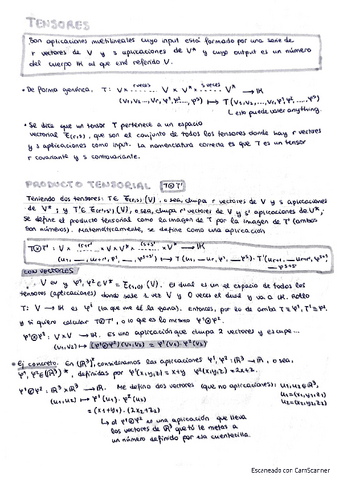 TENSORES
Son aplicaciones multilineales cuyo input está formado por una serie de
r vectores de V y s aplicaciones de V* y cuyo output es un número
del cuerpo K al que esté referido V.
• De forma genérica, T: V × ........ V × V* × ........ V* → K
(v₁, v₂, ..., vᵣ, φ¹, φ², ..., φˢ) ↦ T(v₁, v₂, ..., vᵣ, φ¹, φ², ..., φˢ)
esto puede valer anything.
• Se dice que un tensor T pertenece a un espacio
vectorial, que son el conjunto de todos los tensores donde hay r vectores
y s aplicaciones como input. La nomenclatura correcta es que T es un tensor
r covariante y s contravariante.
PRODUCTO TENSORIAL T⊗T'
Teniendo dos tensores: T ∈ (V), o sea, chupa r vectores de V y s aplicaciones
de V*; y T' ∈ (V), o sea, chupa r' vectores de V y s' aplicaciones de V*,
se define el producto tensorial como la imagen de T por la imagen de T' (ambas
son números). Matemáticamente, se define como una aplicación
T⊗T': V × ... × V × V* × ... V* → K
CON VECTORES
El dual es un el espacio de todos los
tensores (aplicaciones) donde sale 1 vez V y 0 veces el dual y va a K.
T: V → K es φ¹ (la que me dé la gana). Entonces,
y si quiero calcular T⊗T', o lo que es lo mismo φ¹⊗φ²
φ¹⊗φ²: V × V → K. Es una aplicación que chupa 2 vectores y escupe...
(v₁, v₂) ↦ φ¹⊗φ²(v₁, v₂) = φ¹(v₁)·φ²(v₂)
• Ej. concreto. En (R³)*, consideramos las aplicaciones φ¹, φ²: R³ → R, o sea,
φ¹, φ² ∈ (R³)*, definidas por φ¹(x,y,z) = x+y φ²(x,y,z) = 2x+z.
φ¹⊗φ²: R³ × R³ → R. Me defino dos vectores (que no aplicaciones): u₁, u₂ ∈ R³,
(u₁, u₂) ↦ φ¹(u₁)·φ²(u₂) u₁ = (x₁, y₁, z₁)
= (x₁+y₁)·(2x₂+z₂) u₂ = (x₂, y₂, z₂)
↳ el φ¹⊗φ² es una aplicación que lleva
los vectores de R³ que tú le metas a
un número definido por esa cuentecilla.
Escaneado con CamScanner